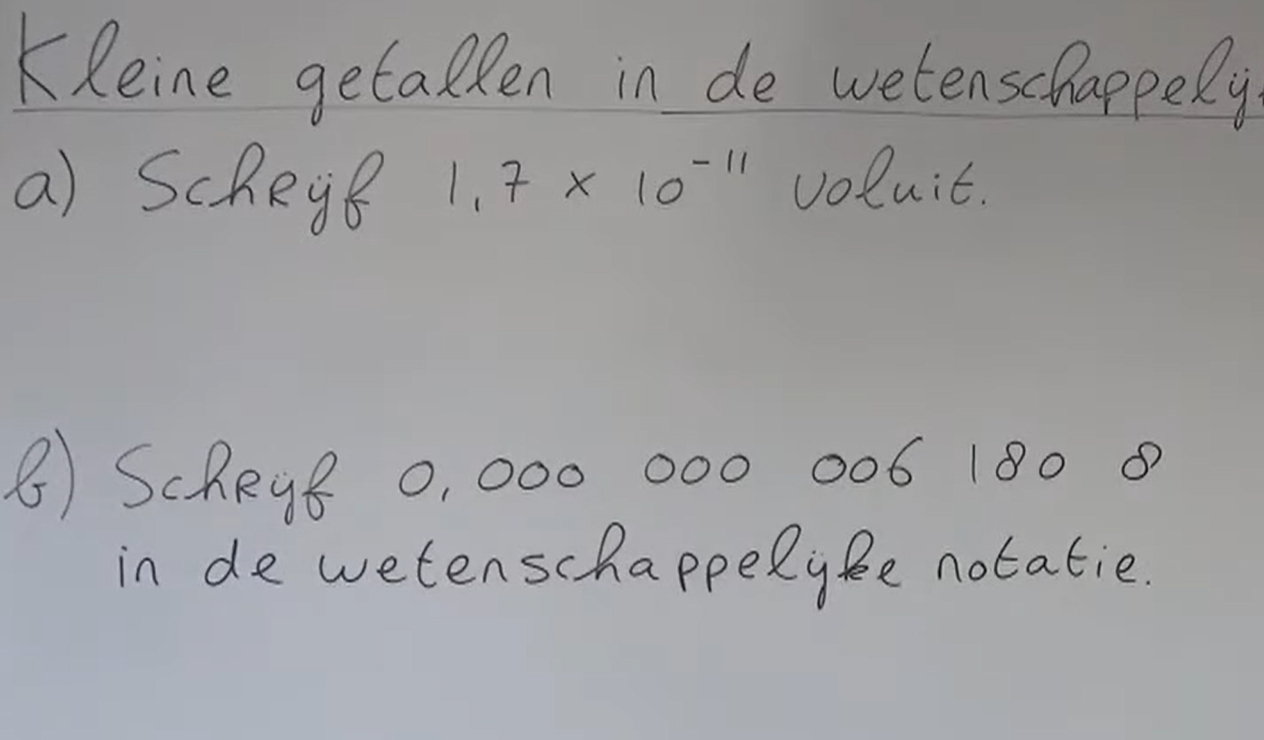 Kleine getallen in de wetenschappelij
a) Schrijf 1,7 x 10⁻¹¹ voluit.
b) Schrijf 0,000 000 006 180 8
in de wetenschappelijke notatie.